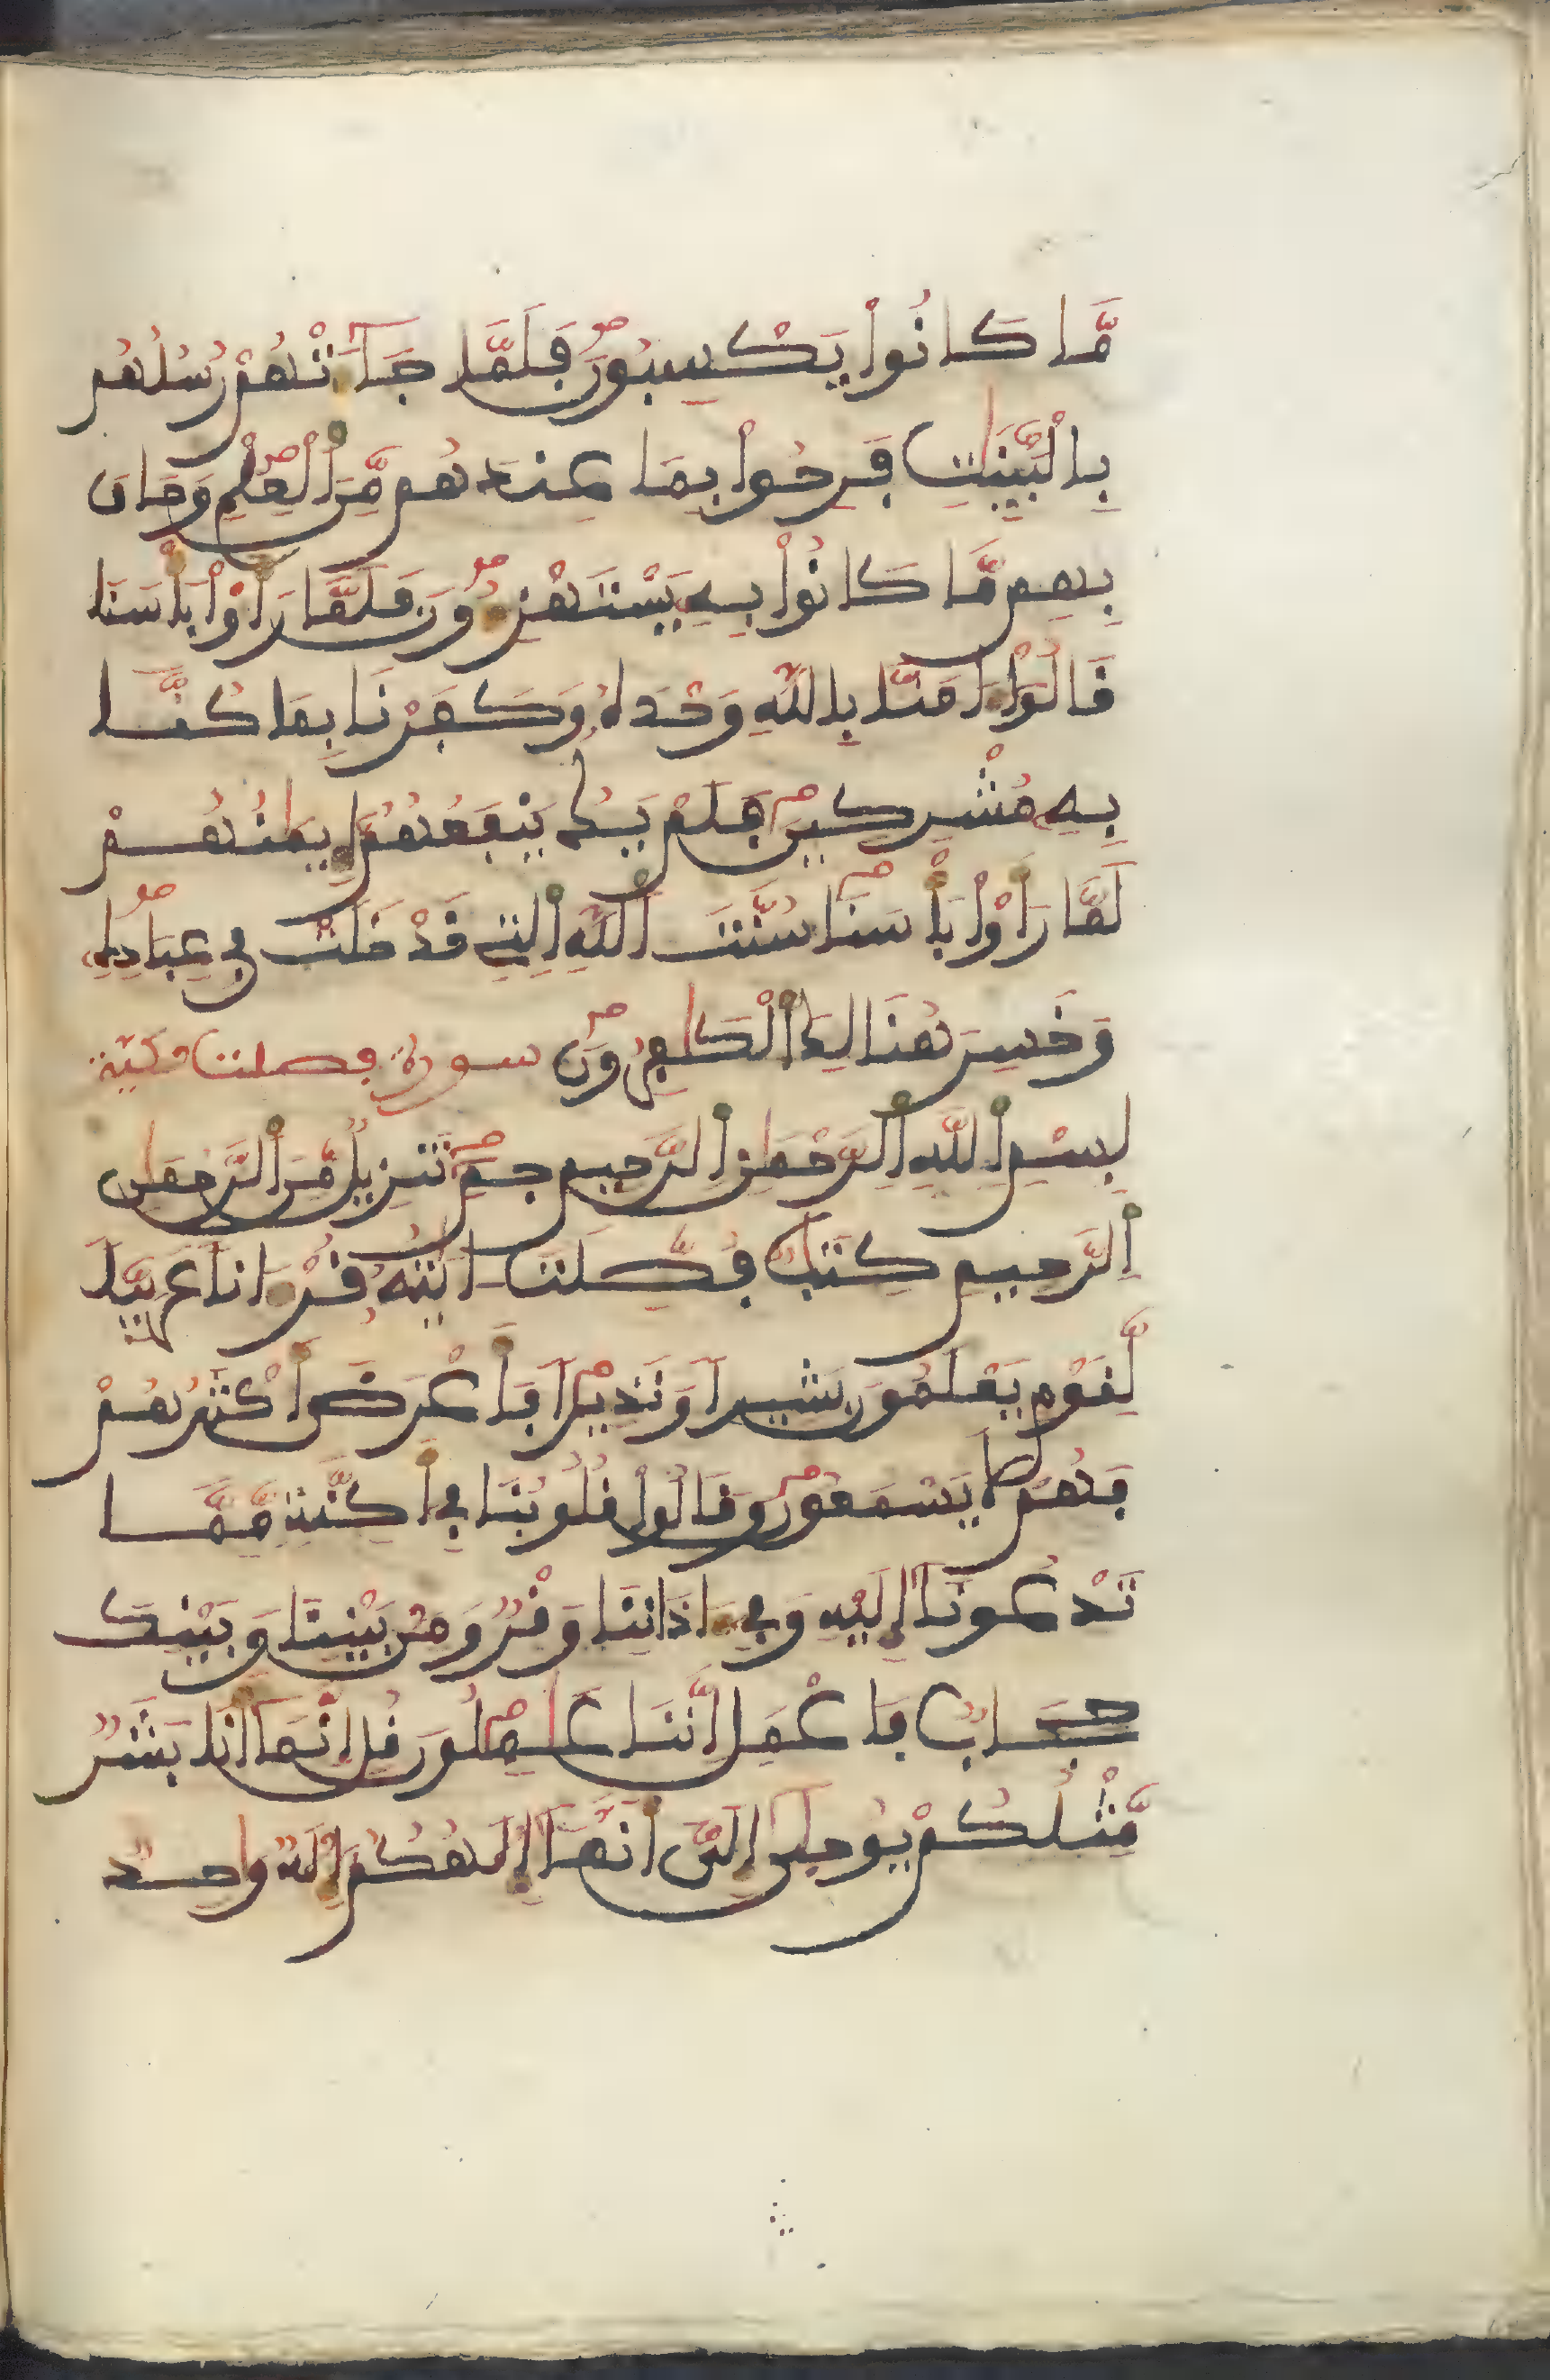 مَّا كَانُوا۟ يَكْسِبُونَ فَلَمَّا جَآءَتْهُمْ رُسُلُهُم
بِالْبَيِّنَٰتِ فَرِحُوا۟ بِمَا عِندَهُم مِّنَ ٱلْعِلْمِ وَحَاقَ
بِهِم مَّا كَانُوا۟ بِهِ يَسْتَهْزِءُونَ فَلَمَّا رَأَوْا۟ بَأْسَنَا
قَالُوٓا۟ ءَامَنَّا بِاللَّهِ وَحْدَهُۥ وَكَفَرْنَا بِمَا كُنَّا
بِهِ مُشْرِكِينَ فَلَمْ يَكُ يَنفَعُهُمُۥٓ إِيمَٰنُهُمْ
لَمَّا رَأَوْا۟ بَأْسَنَا سُنَّتَ ٱللَّهِ ٱلَّتِے قَدْ خَلَتْ فِي عِبَادِهِ
وَخَسِرَ هُنَالِكَ ٱلْكَٰفِرُونَ سورة فصلت مكية
بِسْمِ ٱللَّهِ ٱلرَّحْمَٰنِ ٱلرَّحِيمِ حمٓ تَنزِيلٌ مِّنَ ٱلرَّحْمَٰنِ
ٱلرَّحِيمِ كِتَٰبٌ فُصِّلَتْ ءَايَٰتُهُۥ قُرْءَانًا عَرَبِيًّا
لِّقَوْمٍ يَعْلَمُونَ بَشِيرًا وَنَذِيرًا فَأَعْرَضَ أَكْثَرُهُمْ
فَهُمْ لَا يَسْمَعُونَ وَقَالُوا۟ قُلُوبُنَا فِي أَكِنَّةٍ مِّمَّا
تَدْعُونَآ إِلَيْهِ وَفِي ءَاذَانِنَا وَقْرٌ وَمِنۢ بَيْنِنَا وَبَيْنِكَ
حِجَابٌ فَاعْمَلِ اِنَّنَا عَٰمِلُونَ قُلِ اِنَّمَآ أَنَا بَشَرٌ
مِّثْلُكُمْ يُوحَىٰٓ إِلَىَّ أَنَّمَآ إِلَٰهُكُمُۥٓ إِلَٰهٌ وَٰحِدٌ